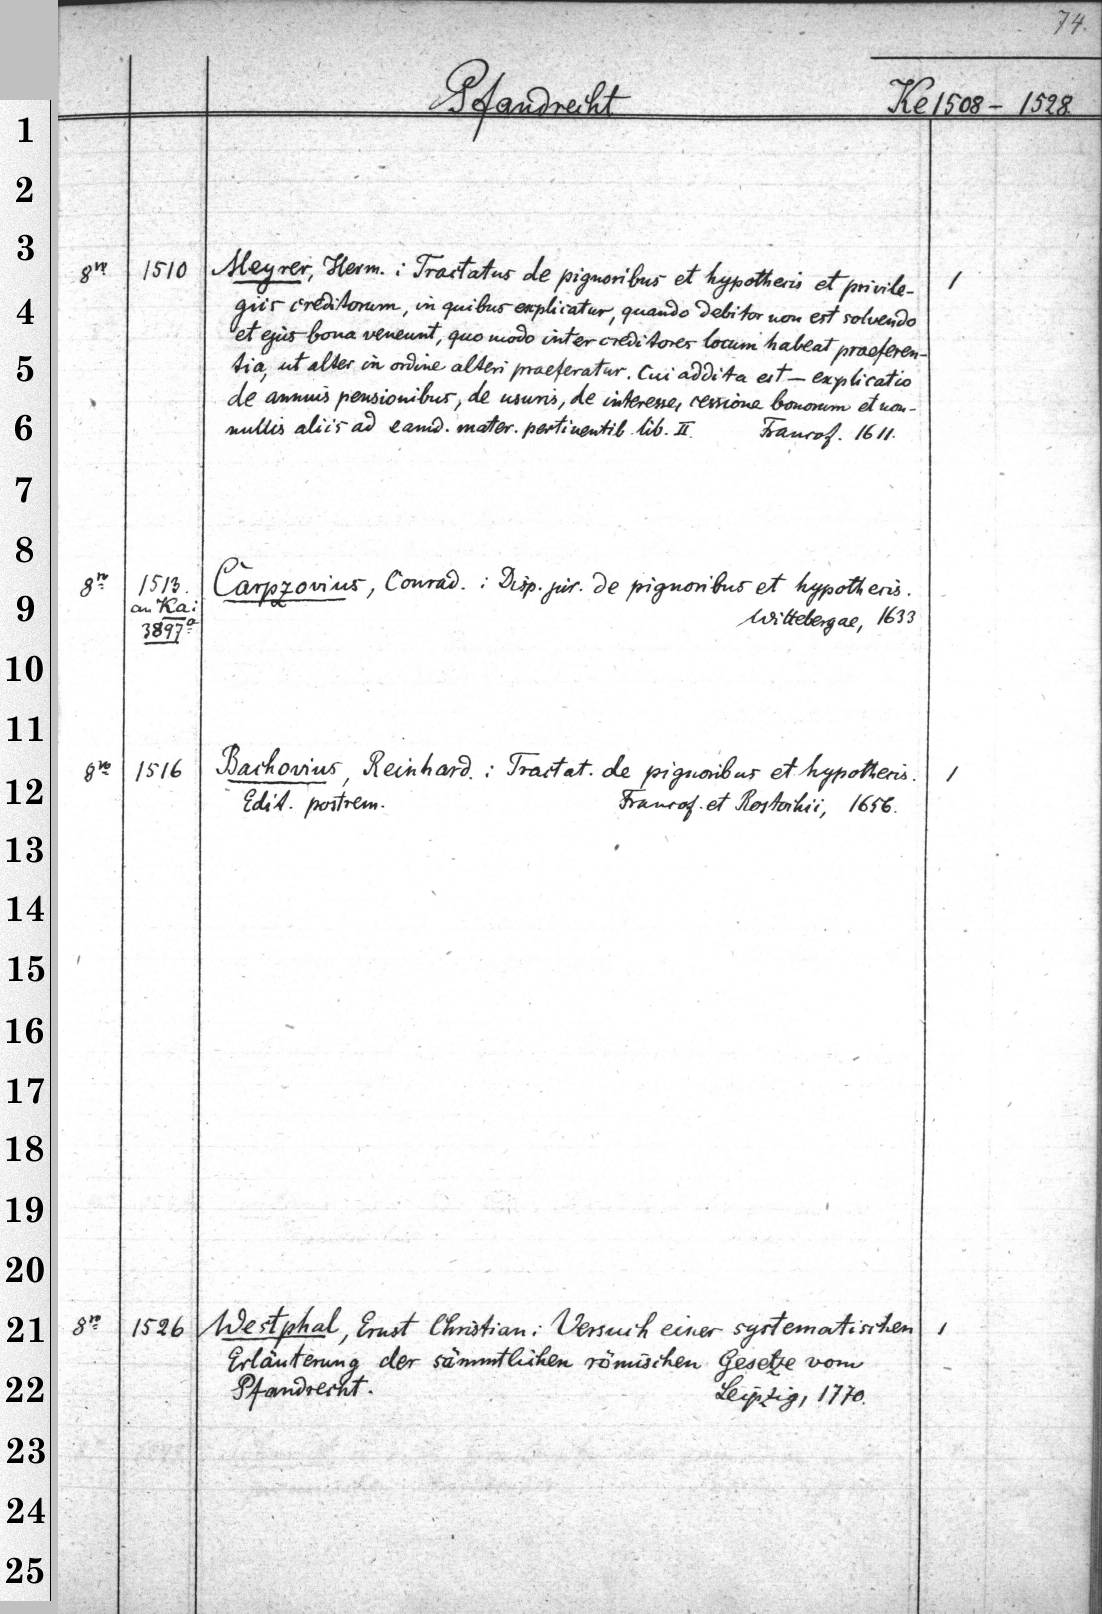 74.
Pfandrecht.
Ke 1508 - 1528.
1
2
3
8vo 1510 Meyrer, Herm. : Tractatus de pignoribus et hypothecis et privile- 1
4
giis creditorum, in quibus explicatur, quando debitor non est solvendo
et ejus bona veneunt, quo modo inter creditores locum habeat praeferen-
5
tia, ut alter in ordine alteri praeferatur. Cui addita est — explicatio
de annuis pensionibus, de usuris, de interesse, cessione bonorum et non-
6
nullis aliis ad eamd. mater. pertinentib. lib. II. Francof. 1611.
7
8
8vo 1513. Carpzovius, Conrad. : Disp. jur. de pignoribus et hypothecis.
9
an Ka:
Wittebergae, 1633
3897a
10
11
8vo 1516 Bachovius, Reinhard. : Tractat. de pignoribus et hypothecis. 1
12
Edit. postrem. Francof. et Rostochii, 1656.
13
14
15
16
17
18
19
20
21
8vo 1526 Westphal, Ernst Christian: Versuch einer systematischen 1
Erläuterung der sämmtlichen römischen Gesetze vom
22
Pfandrecht. Leipzig, 1770.
23
24
25